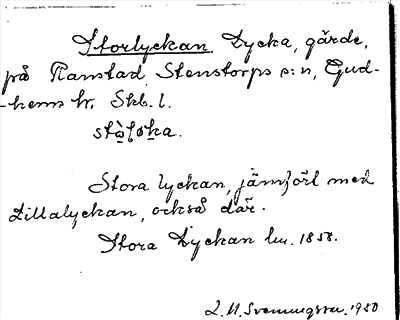 Storlyckan Lycka, gärde,
på Ranstad Stenstorps s:n, Gud-
-hems hr. Skb. l.
Stora lyckan, jämfört med
Lillalyckan, också där.
Stora Lyckan lm. 1858.
L. M. Svenungsson. 1950